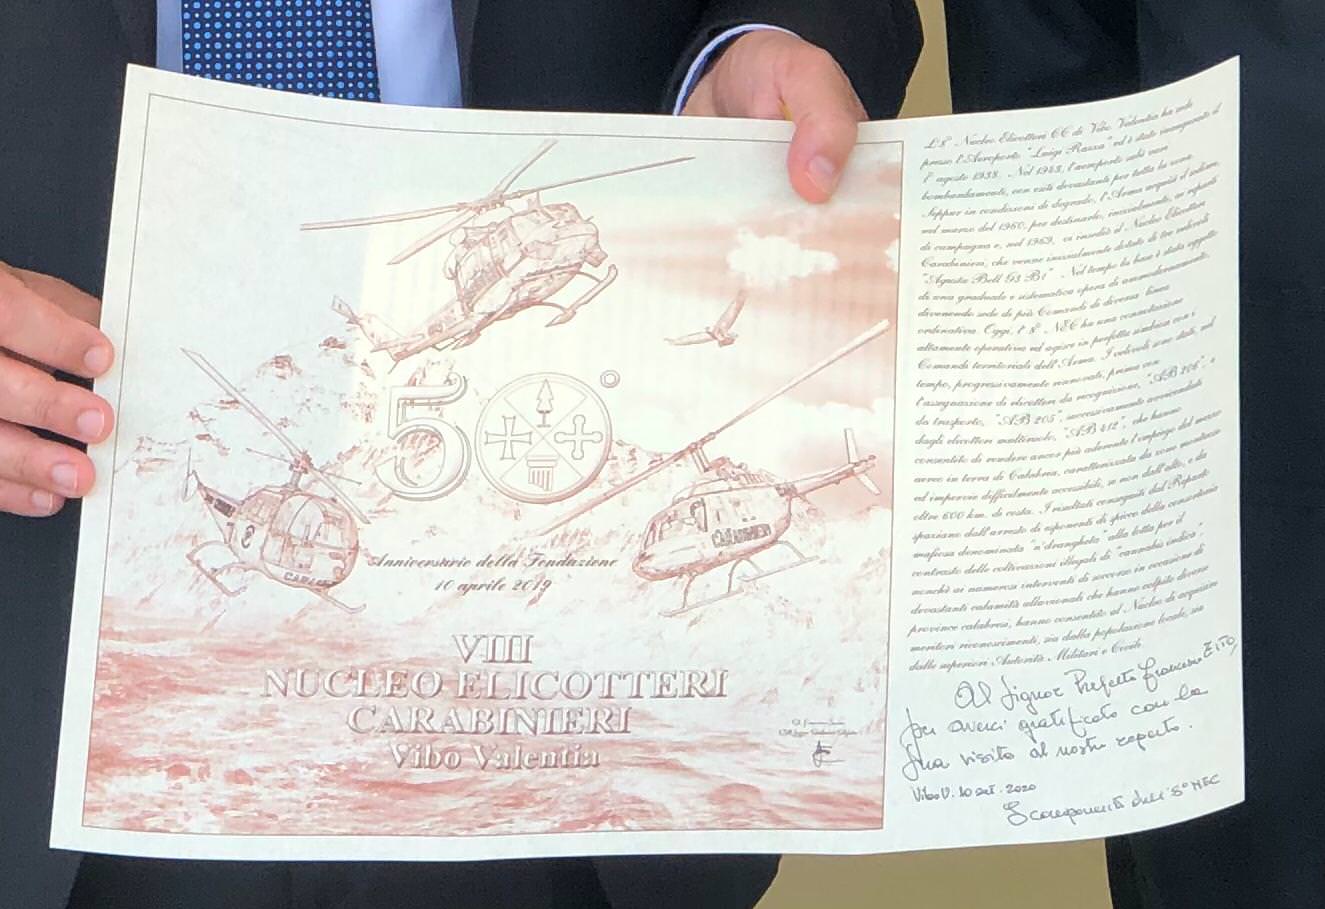 50°
Anniversario della Fondazione
10 aprile 2019
VIII
NUCLEO ELICOTTERI
CARABINIERI
Vibo Valentia
78
CARABINIERI
L'8° Nucleo Elicotteri CC di Vibo Valentia ha sede
presso l'Aeroporto "Luigi Razza" ed è stato inaugurato il
1° agosto 1938. Nel 1943, l'aeroporto subì vari
bombardamenti, con esiti devastanti per tutta la zona.
Seppur in condizioni di degrado, l'Arma acquisì il sedime
nel marzo del 1960, per destinarlo, inizialmente, ai reparti
di campagna e, nel 1969, vi insediò il Nucleo Elicotteri
Carabinieri, che venne inizialmente dotato di tre velivoli
"Agusta Bell 93 B1". Nel tempo la base è stata oggetto
di una graduale e sistematica opera di ammodernamento,
divenendo sede di più Comandi di diversa linea
ordinativa. Oggi, l'8° NEC ha una connotazione
altamente operativa ed agisce in perfetta simbiosi con i
Comandi territoriali dell'Arma. I velivoli sono stati, nel
tempo, progressivamente rinnovati, prima con
l'assegnazione di elicotteri da ricognizione, "AB 206", e
da trasporto, "AB 205", successivamente avvicendati
dagli elicotteri multiruolo, "AB 412", che hanno
consentito di rendere ancor più aderente l'impiego del mezzo
aereo in terra di Calabria, caratterizzata da zone montuose
ed impervie difficilmente accessibili, se non dall'alto, e da
oltre 600 km. di costa. I risultati conseguiti dal Reparto
spaziano dall'arresto di esponenti di spicco della consorteria
mafiosa denominata "n'drangheta" alla lotta per il
contrasto delle coltivazioni illegali di "cannabis indica"
nonché ai numerosi interventi di soccorso in occasione di
devastanti calamità alluvionali che hanno colpito diverse
province calabresi, hanno consentito al Nucleo di acquisire
meritori riconoscimenti, sia dalla popolazione locale, sia
dalle superiori Autorità Militari e Civili.
Al Signor Prefetto Francesco ZITO,
per averci gratificato con la
Sua visita al nostro reparto.
Vibo V. 10 set. 2020
I componenti dell'8° NEC